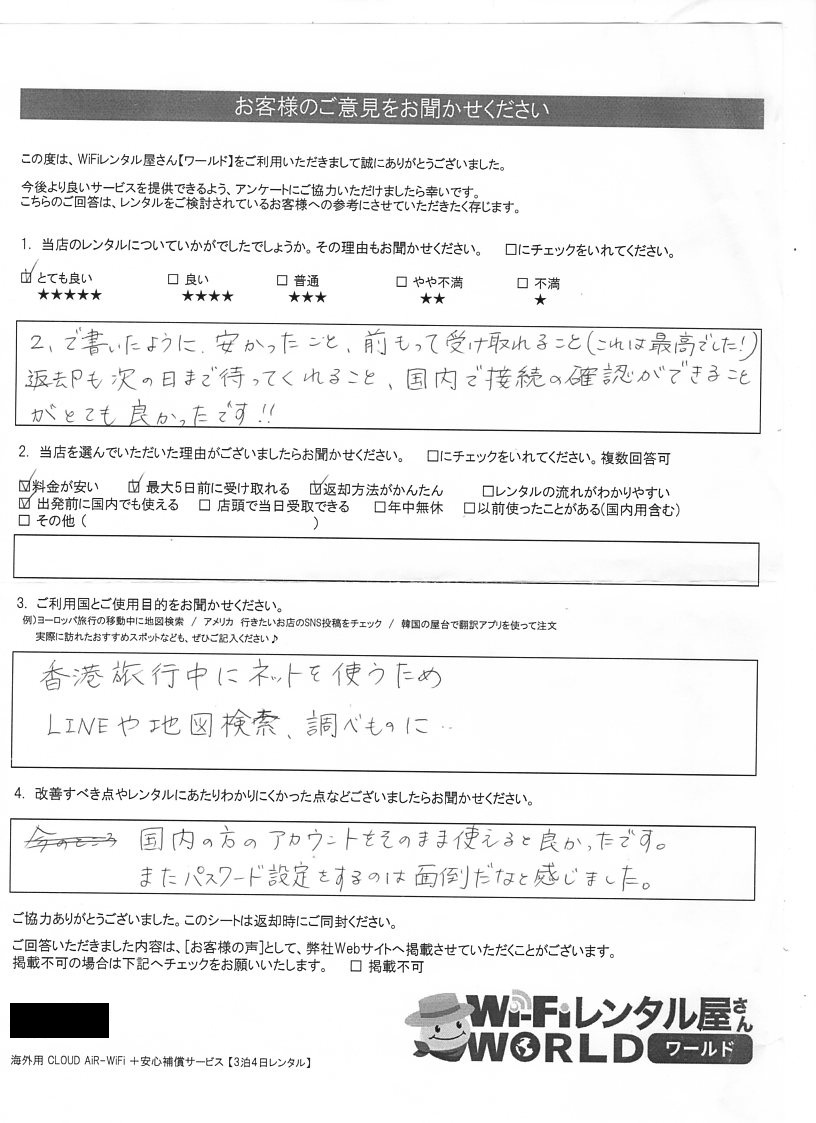 お客様のご意見をお聞かせください
この度は、WiFiレンタル屋さん【ワールド】をご利用いただきまして誠にありがとうございました。
今後より良いサービスを提供できるよう、アンケートにご協力いただけましたら幸いです。
こちらのご回答は、レンタルをご検討されているお客様への参考にさせていただきたく存じます。
1. 当店のレンタルについていかがでしたでしょうか。その理由もお聞かせください。 □にチェックをいれてください。
☑ とても良い □ 良い □ 普通 □ やや不満 □ 不満
★★★★★ ★★★★ ★★★ ★★ ★
2、で書いたように、安かったこと、前もって受け取れること(これは最高でした!)
返却も次の日まで待ってくれること、国内で接続の確認ができること
がとても良かったです!!
2. 当店を選んでいただいた理由がございましたらお聞かせください。 □にチェックをいれてください。複数回答可
☑料金が安い ☑ 最大5日前に受け取れる ☑返却方法がかんたん □レンタルの流れがわかりやすい
☑ 出発前に国内でも使える □ 店頭で当日受取できる □年中無休 □以前使ったことがある(国内用含む)
□ その他 ( )
3. ご利用国とご使用目的をお聞かせください。
例)ヨーロッパ旅行の移動中に地図検索 / アメリカ 行きたいお店のSNS投稿をチェック / 韓国の屋台で翻訳アプリを使って注文
実際に訪れたおすすめスポットなども、ぜひご記入ください♪
香港旅行中にネットを使うため
LINEや地図検索、調べものに‥
4. 改善すべき点やレンタルにあたりわかりにくかった点などございましたらお聞かせください。
今のところ 国内の方のアカウントをそのまま使えると良かったです。
またパスワード設定をするのは面倒だなと感じました。
ご協力ありがとうございました。このシートは返却時にご同封ください。
ご回答いただきました内容は、[お客様の声]として、弊社Webサイトへ掲載させていただくことがございます。
掲載不可の場合は下記へチェックをお願いいたします。 □ 掲載不可
Wi-Fiレンタル屋さん
WORLD ワールド
海外用 CLOUD AiR-WiFi +安心補償サービス【3泊4日レンタル】